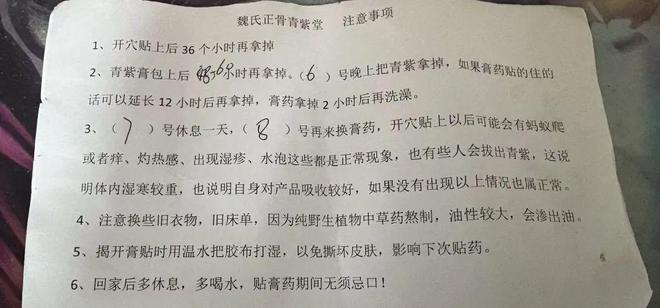 魏氏正骨青紫堂 注意事项
1、开穴贴上后 36 个小时再拿掉
2、青紫膏包上后 小时再拿掉。（6）号晚上把青紫拿掉，如果膏药贴的住的
话可以延长 12 小时后再拿掉，膏药拿掉 2 小时后再洗澡。
3、（7）号休息一天，（8）号再来换膏药，开穴贴上以后可能会有蚂蚁爬
或者痒、灼热感、出现湿疹、水泡这些都是正常现象，也有些人会拔出青紫，这说
明体内湿寒较重，也说明自身对产品吸收较好，如果没有出现以上情况也属正常。
4、注意换些旧衣物，旧床单，因为纯野生植物中草药熬制，油性较大，会渗出油。
5、揭开膏贴时用温水把胶布打湿，以免撕坏皮肤，影响下次贴药。
6、回家后多休息，多喝水，贴膏药期间无须忌口！